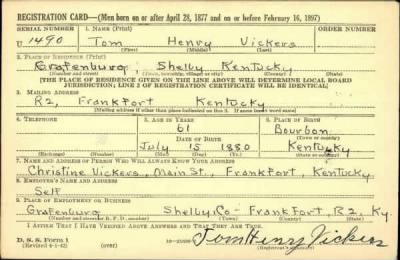 REGISTRATION CARD—(Men born on or after April 28, 1877 and on or before February 16, 1897)
SERIAL NUMBER 1. NAME (Print) ORDER NUMBER
U 1490 Tom Henry Vickers
(First) (Middle) (Last)
2. PLACE OF RESIDENCE (Print)
Grafenburg, Shelby Kentucky
(Number and street) (Town, township, village or city) (County) (State)
[THE PLACE OF RESIDENCE GIVEN ON THE LINE ABOVE WILL DETERMINE LOCAL BOARD
JURISDICTION; LINE 2 OF REGISTRATION CERTIFICATE WILL BE IDENTICAL]
3. MAILING ADDRESS
R2, Frankfort Kentucky
[Mailing address if other than place indicated on line 2. If same insert word same]
4. TELEPHONE 5. AGE IN YEARS 6. PLACE OF BIRTH
61 Bourbon
DATE OF BIRTH (Town or county)
July 15 1880 Kentucky
(Exchange) (Number) (Mo.) (Day) (Yr.) (State or country)
7. NAME AND ADDRESS OF PERSON WHO WILL ALWAYS KNOW YOUR ADDRESS
Christine Vickers, Main St., Frankfort, Kentucky
8. EMPLOYER'S NAME AND ADDRESS
Self
9. PLACE OF EMPLOYMENT OR BUSINESS
Grafenburg Shelby, Co Frankfort, R2, Ky.
(Number and street or R. F. D. number) (Town) (County) (State)
I AFFIRM THAT I HAVE VERIFIED ABOVE ANSWERS AND THAT THEY ARE TRUE.
D. S. S. Form 1
(Revised 4-1-42) (over) Tom Henry Vickers